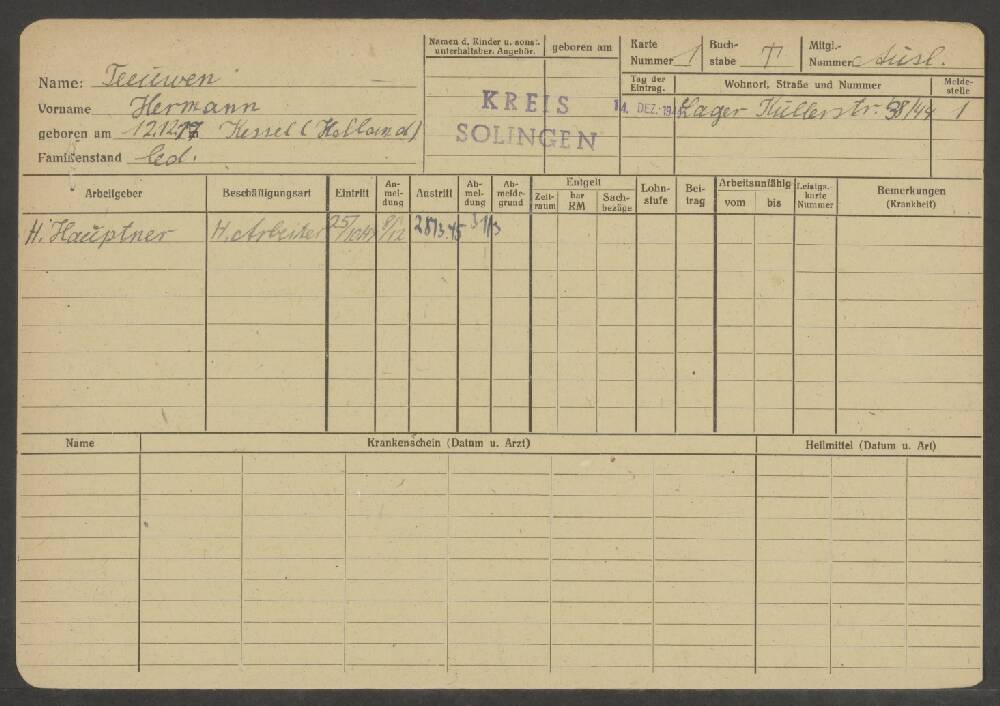 Name: Teeuwen
Vorname Hermann
geboren am 12.12.17 Kessel (Holland)
Familienstand led.
Namen d. Kinder u. sonst. unterhaltsber. Angehör.
geboren am
KREIS
SOLINGEN
Karte Nummer 1
Buchstabe T
Mitgl.-Nummer Ausl.
Tag der Eintrag.
Wohnort, Straße und Nummer
Meldestelle
14. DEZ. Lager Kullerstr. 38/44 1
Arbeitgeber
Beschäftigungsart
Eintritt
Anmeldung
Austritt
Abmeldung
Abmeldegrund
Entgelt
Zeitraum
bar RM
Sachbezüge
Lohnstufe
Beitrag
Arbeitsunfähig
vom
bis
Leistgs.-karte Nummer
Bemerkungen
(Krankheit)
H. Hauptner H. Arbeiter 28/3.45
Name
Krankenschein (Datum u. Arzt)
Heilmittel (Datum u. Art)